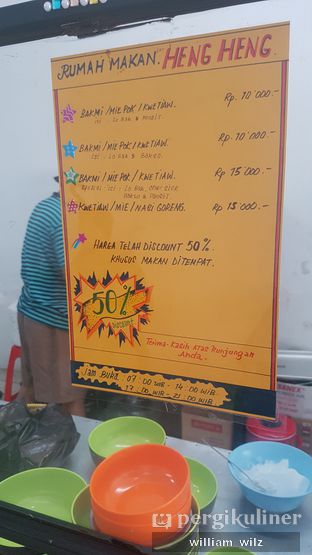 RUMAH MAKAN. HENG HENG
BAKMI / MIE POK / KWETIAW. Rp. 10'000.-
ISI : LO BAK & PANSIT.
BAKMI / MIE POK / KWETIAW. Rp. 10'000.-
ISI : LO BAK & BAKSO.
BAKMI / MIE POK / KWETIAW. Rp 15 000.-
ISI : LO BAK,
BAKSO & PANSIT
KWETIAW / MIE / NASI GORENG. Rp 15'000.-
HARGA TELAH DISCOUNT 50%.
KHUSUS MAKAN DITEMPAT.
50%
DISCOUNT
Terima-Kasih Atas Kunjungan
Anda.
Jam Buka. 07 00 WIB - 14 00 WIB
17 00 WIB - 21 00 WIB
pergikuliner
william_wilz